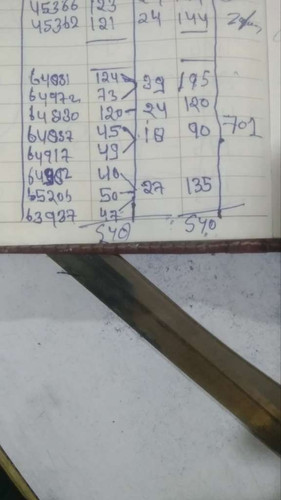 45366 123
45362 121 24 144
64831 124 39 195
64972 73
64830 120 24 120
64837 45 18 90 701
64917 49
40
65203 50 27 135
63927 47
540 540